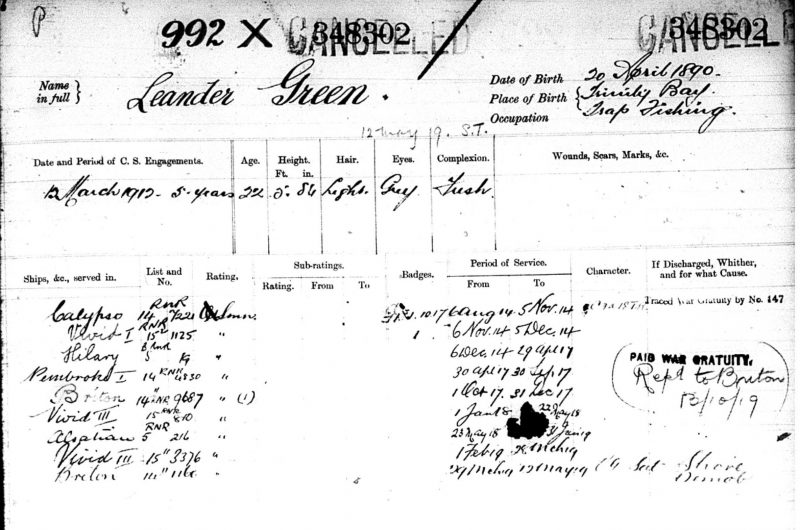 P
992 X CANCELLED 348302 CANCELLED 348302
Name in full } Leander Green.
Date of Birth 20 April 1890.
Place of Birth { Trinity Bay.
Occupation Trap Fishing.
12 May 19. S.T.
Date and Period of C. S. Engagements. Age. Height. Ft. in. Hair. Eyes. Complexion. Wounds, Scars, Marks, &c.
12 March 1912 - 5 years 22 5. 8½ Light. Grey Fresh.
Ships, &c., served in. List and No. Rating. Sub-ratings. Rating. From To Badges. Period of Service. From To Character. If Discharged, Whither, and for what Cause.
Traced War Gratuity by No. 147
Calypso 14 RNR Smn. 6 Aug 14 5 Nov. 14
Vivid I 15 RNR 1125 " 1 6 Nov. 14 5 Dec. 14
Hilary 5 RNR " 6 Dec. 14 29 Apl 17
Pembroke I 14 RNR 4830 " 30 Apl 17 30 Sep 17
Briton 14 RNR 9687 " (1) 1 Oct 17. 31 Dec 17
Vivid III 15 RNR 810 " 1 Jan 18 22 May 18
Alsatian 5 RNR 216 " 23 May 18 31 Jan 19
Vivid III 15 3376 " 1 Feb 19 Mch 19
Briton " 1160 " 29 Mch 19 12 May 19 Shore
Demob
PAID WAR GRATUITY.
Rept to Briton
13/10/19